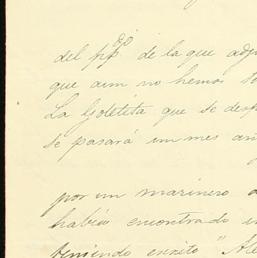 del pp.do de la que adju
que aun no hemos
La Goletita que se desp
se pasará un mes añ
por un marinero a
habia encontrado
teniendo escrito "Ale